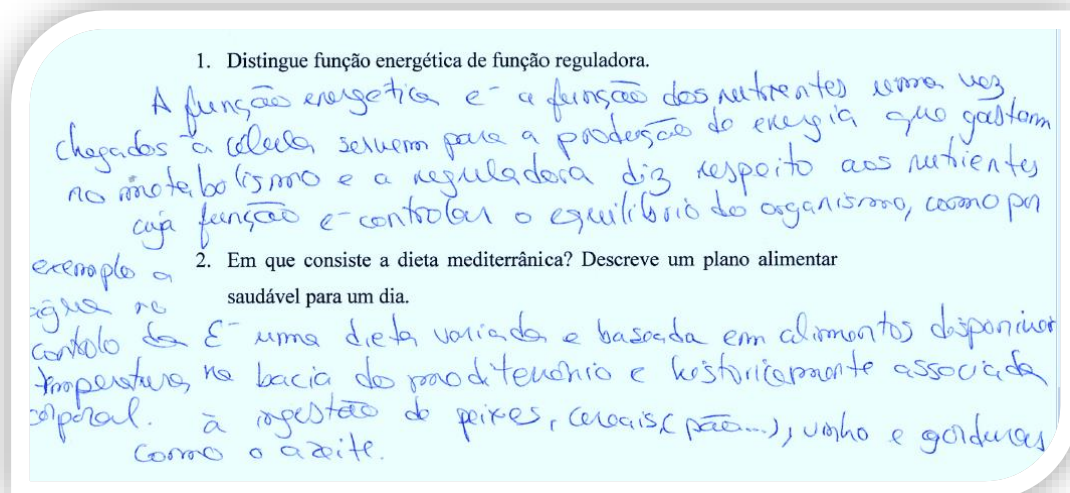 1. Distingue função energética de função reguladora.
A função energética e- a função dos nutrientes uma vez
chegados à célula servem para a produção de energia que gastam
no metabolismo e a reguladora diz respeito aos nutrientes
cuja função e- controlar o equilíbrio do organismo, como por
exemplo a
água no
controlo da
temperatura
corporal.
2. Em que consiste a dieta mediterrânica? Descreve um plano alimentar
saudável para um dia.
É uma dieta variada e baseada em alimentos disponíveis
na bacia do mediterrânio e historicamente associada
à ingestão de peixes, cereais, (pão...), vinho e gorduras
como o azeite.